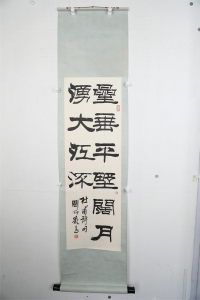 星垂平野闊月
湧大江流
杜甫詩句